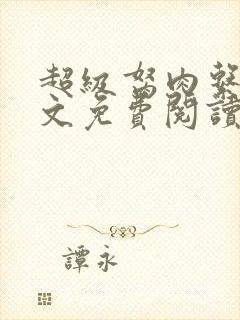 超級驽肉
文免費閱讀
譚永